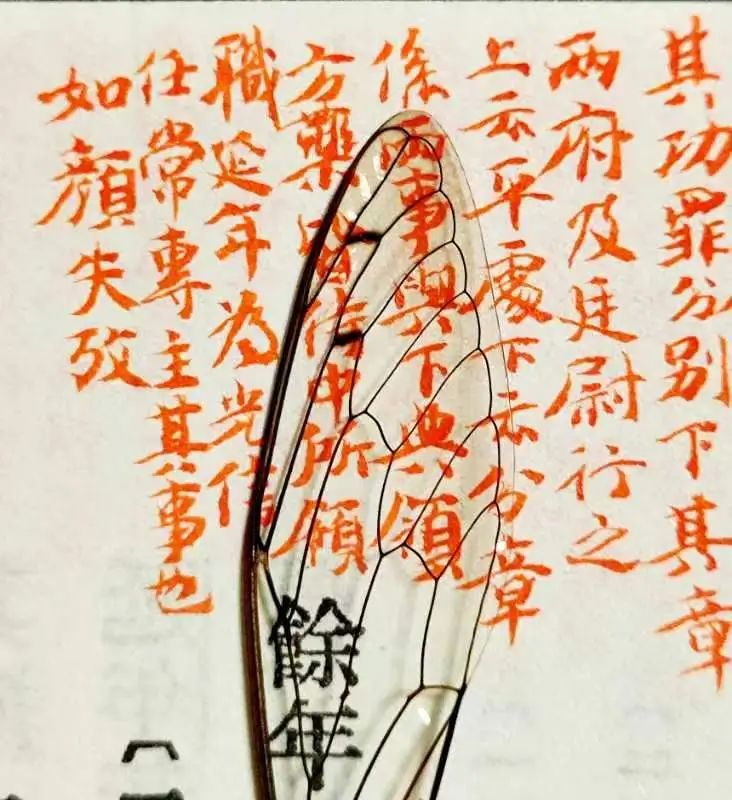 其功罪分别下其章
兩府及廷尉行之
上云平處下云分章
係兩事與下典領
方藥皆侍中所領
職延年為光信
任常專主其事也
如顏失攷
餘年